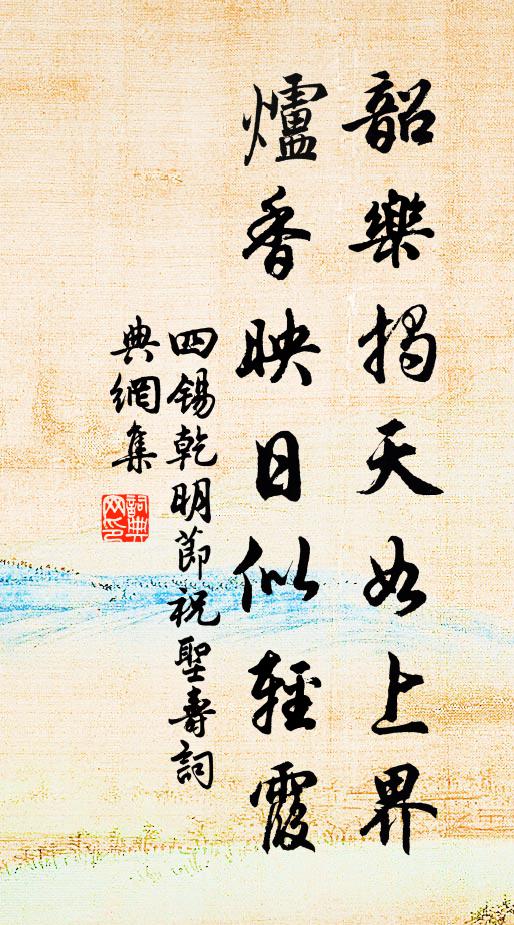 韶樂揭天如上界
爐香映日似輕霞
四錫乾明節祝聖壽詞
典網集
詞典網印